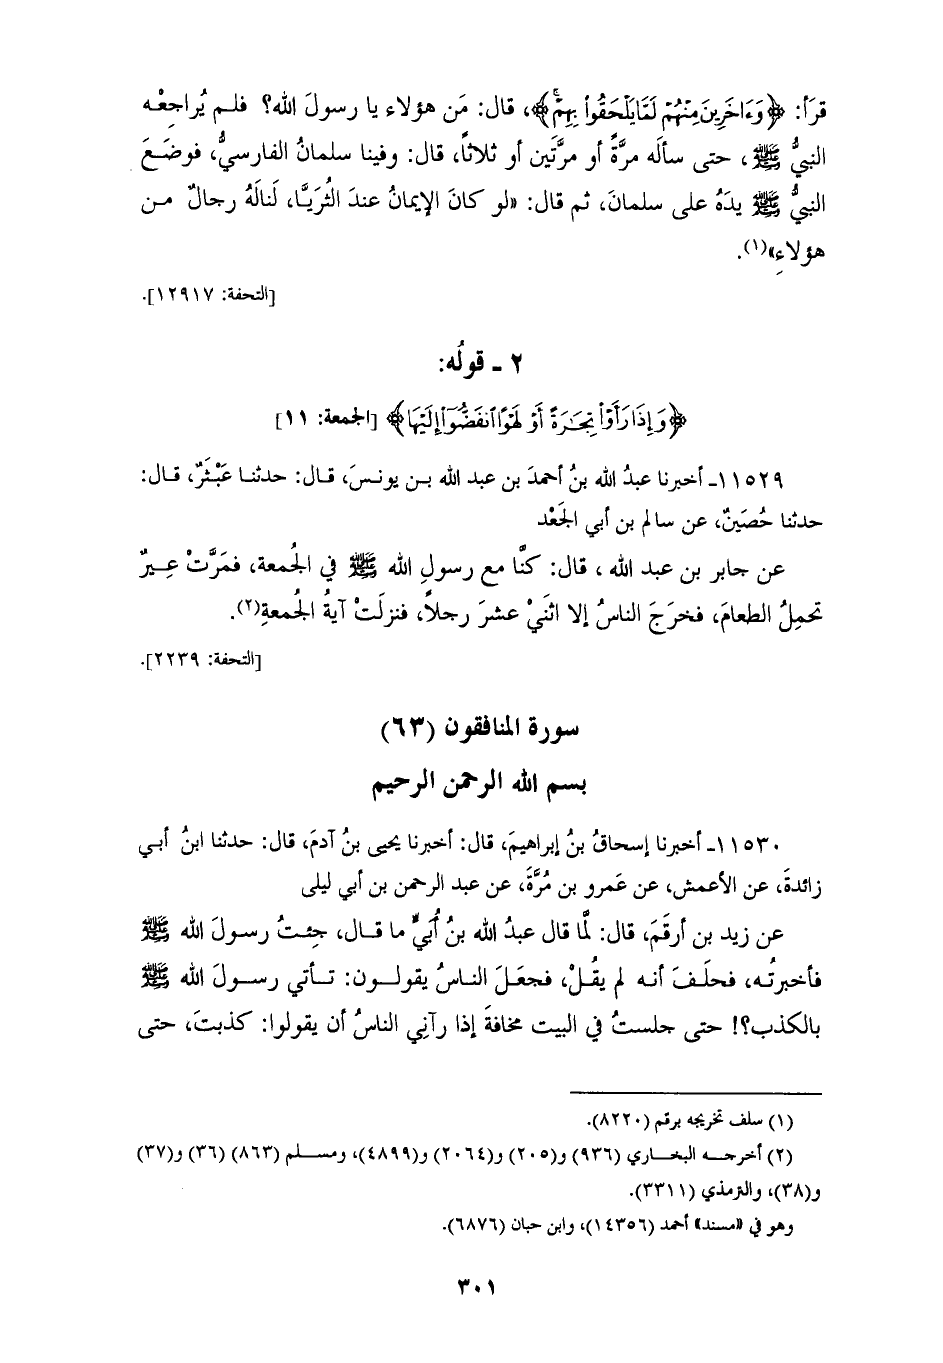 قرَأ: ﴿وَءَاخَرِينَ مِنْهُمْ لَمَّا يَلْحَقُوا۟ بِهِمْ﴾، قال: مَن هؤلاء يا رسولَ الله؟ فلـم يُراجِعْه
النبيُّ ﷺ، حتى سألَه مرَّةً أو مرَّتَين أو ثلاثاً، قال: وفينا سلمانُ الفارسيُّ، فوضَعَ
النبيُّ ﷺ يدَهُ على سلمانَ، ثم قال: «لو كانَ الإيمانُ عندَ الثُّرَيَّا، لَنالَهُ رجالٌ مـن
هؤلاءِ»(١).
[التحفة: ١٢٩١٧].
٢ ـ قولُه:
﴿وَإِذَا رَأَوْا۟ تِجَـٰرَةً أَوْ لَهْوًا ٱنفَضُّوٓا۟ إِلَيْهَا﴾ [الجمعة: ١١]
١١٥٢٩ـ أخبرنا عبدُ الله بنُ أحمدَ بن عبد الله بـن يونـسَ، قـال: حدثنـا عَبْثَرٌ، قـال:
حدثنا حُصَينٌ، عن سالم بن أبي الجَعْد
عن جابر بن عبد الله ، قال: كنَّا مع رسولِ الله ﷺ في الجُمعة، فمَرَّتْ عِـيرٌ
تحمِلُ الطعامَ، فخرَجَ الناسُ إلا اثنَيْ عشرَ رجلاً، فنزلَتْ آيةُ الجُمعةِ(٢).
[التحفة: ٢٢٣٩].
سورة المنافقون (٦٣)
بسم الله الرحمن الرحيم
١١٥٣٠ـ أخبرنا إسحاقُ بنُ إبراهيمَ، قال: أخبرنا يحيى بنُ آدمَ، قال: حدثنا ابنُ أبـي
زائدةَ، عن الأعمش، عن عَمرو بن مُرَّةَ، عن عبد الرحمن بن أبي ليلى
عن زيد بن أرقَمَ، قال: لَمَّا قال عبدُ الله بنُ أُبيٍّ ما قـال، جِئـتُ رسـولَ الله ﷺ
فأخبرتُـه، فحلَـفَ أنـه لم يقُـلْ، فجعَلَ النـاسُ يقولـون: تـأتي رسـولَ الله ﷺ
بالكذب؟! حتى جلستُ في البيت مخافةَ إذا رآنِي الناسُ أن يقولوا: كذبتَ، حتى
(١) سلف تخريجه برقم (٨٢٢٠).
(٢) أخرجـه البخـاري (٩٣٦) و(٢٠٥) و(٢٠٦٤) و(٤٨٩٩)، ومسـلم (٨٦٣) (٣٦) و(٣٧)
و(٣٨)، والترمذي (٣٣١١).
وهو في «مسند» أحمد (١٤٣٥٦)، وابن حبان (٦٨٧٦).
٣٠١